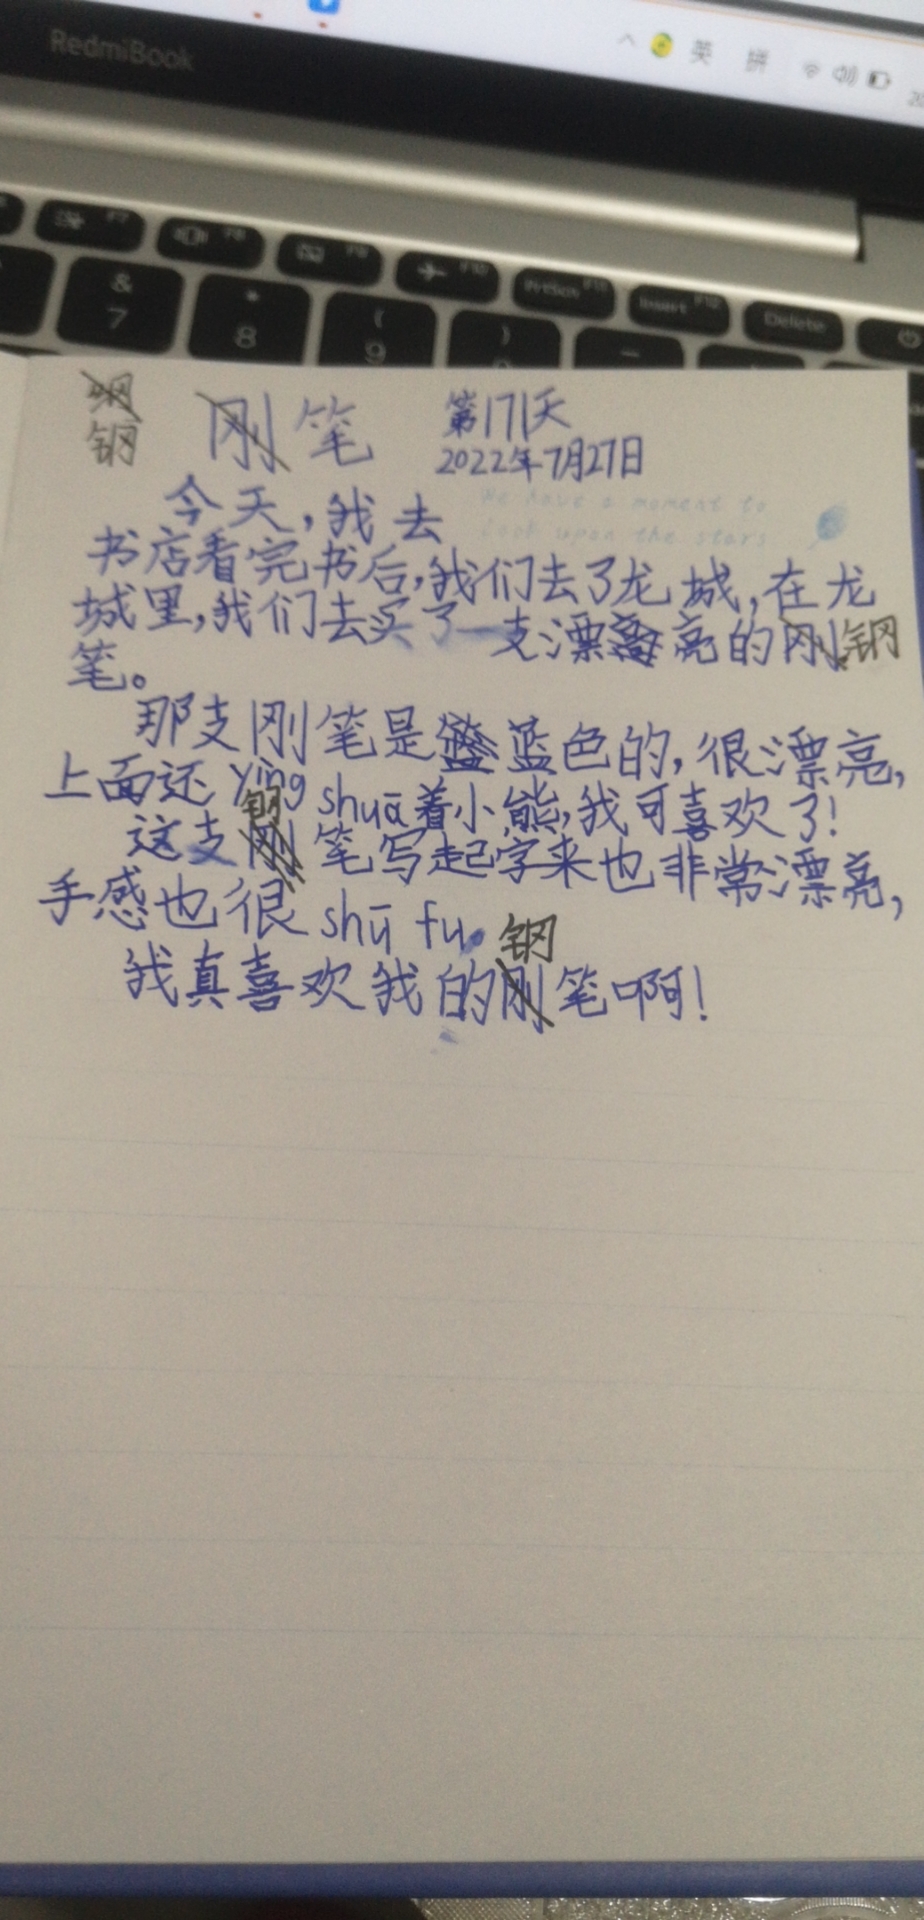 RedmiBook
英 拼
F7 F8 F9 F10 PrtScn F11 Insert F12 Delete
& 7 * 8 ( 9 )
钢
刚笔 第171天
2022年7月27日
We have a moment to
look upon the stars
今天,我去
书店看完书后,我们去了龙城,在龙
城里,我们去买了一支漂亮的刚钢
笔。
那支刚笔是蓝色的,很漂亮,
上面还yìng shuā着小熊,我可喜欢了!
钢
这支刚笔写起字来也非常漂亮,
手感也很shū fu。
钢
我真喜欢我的刚笔啊!